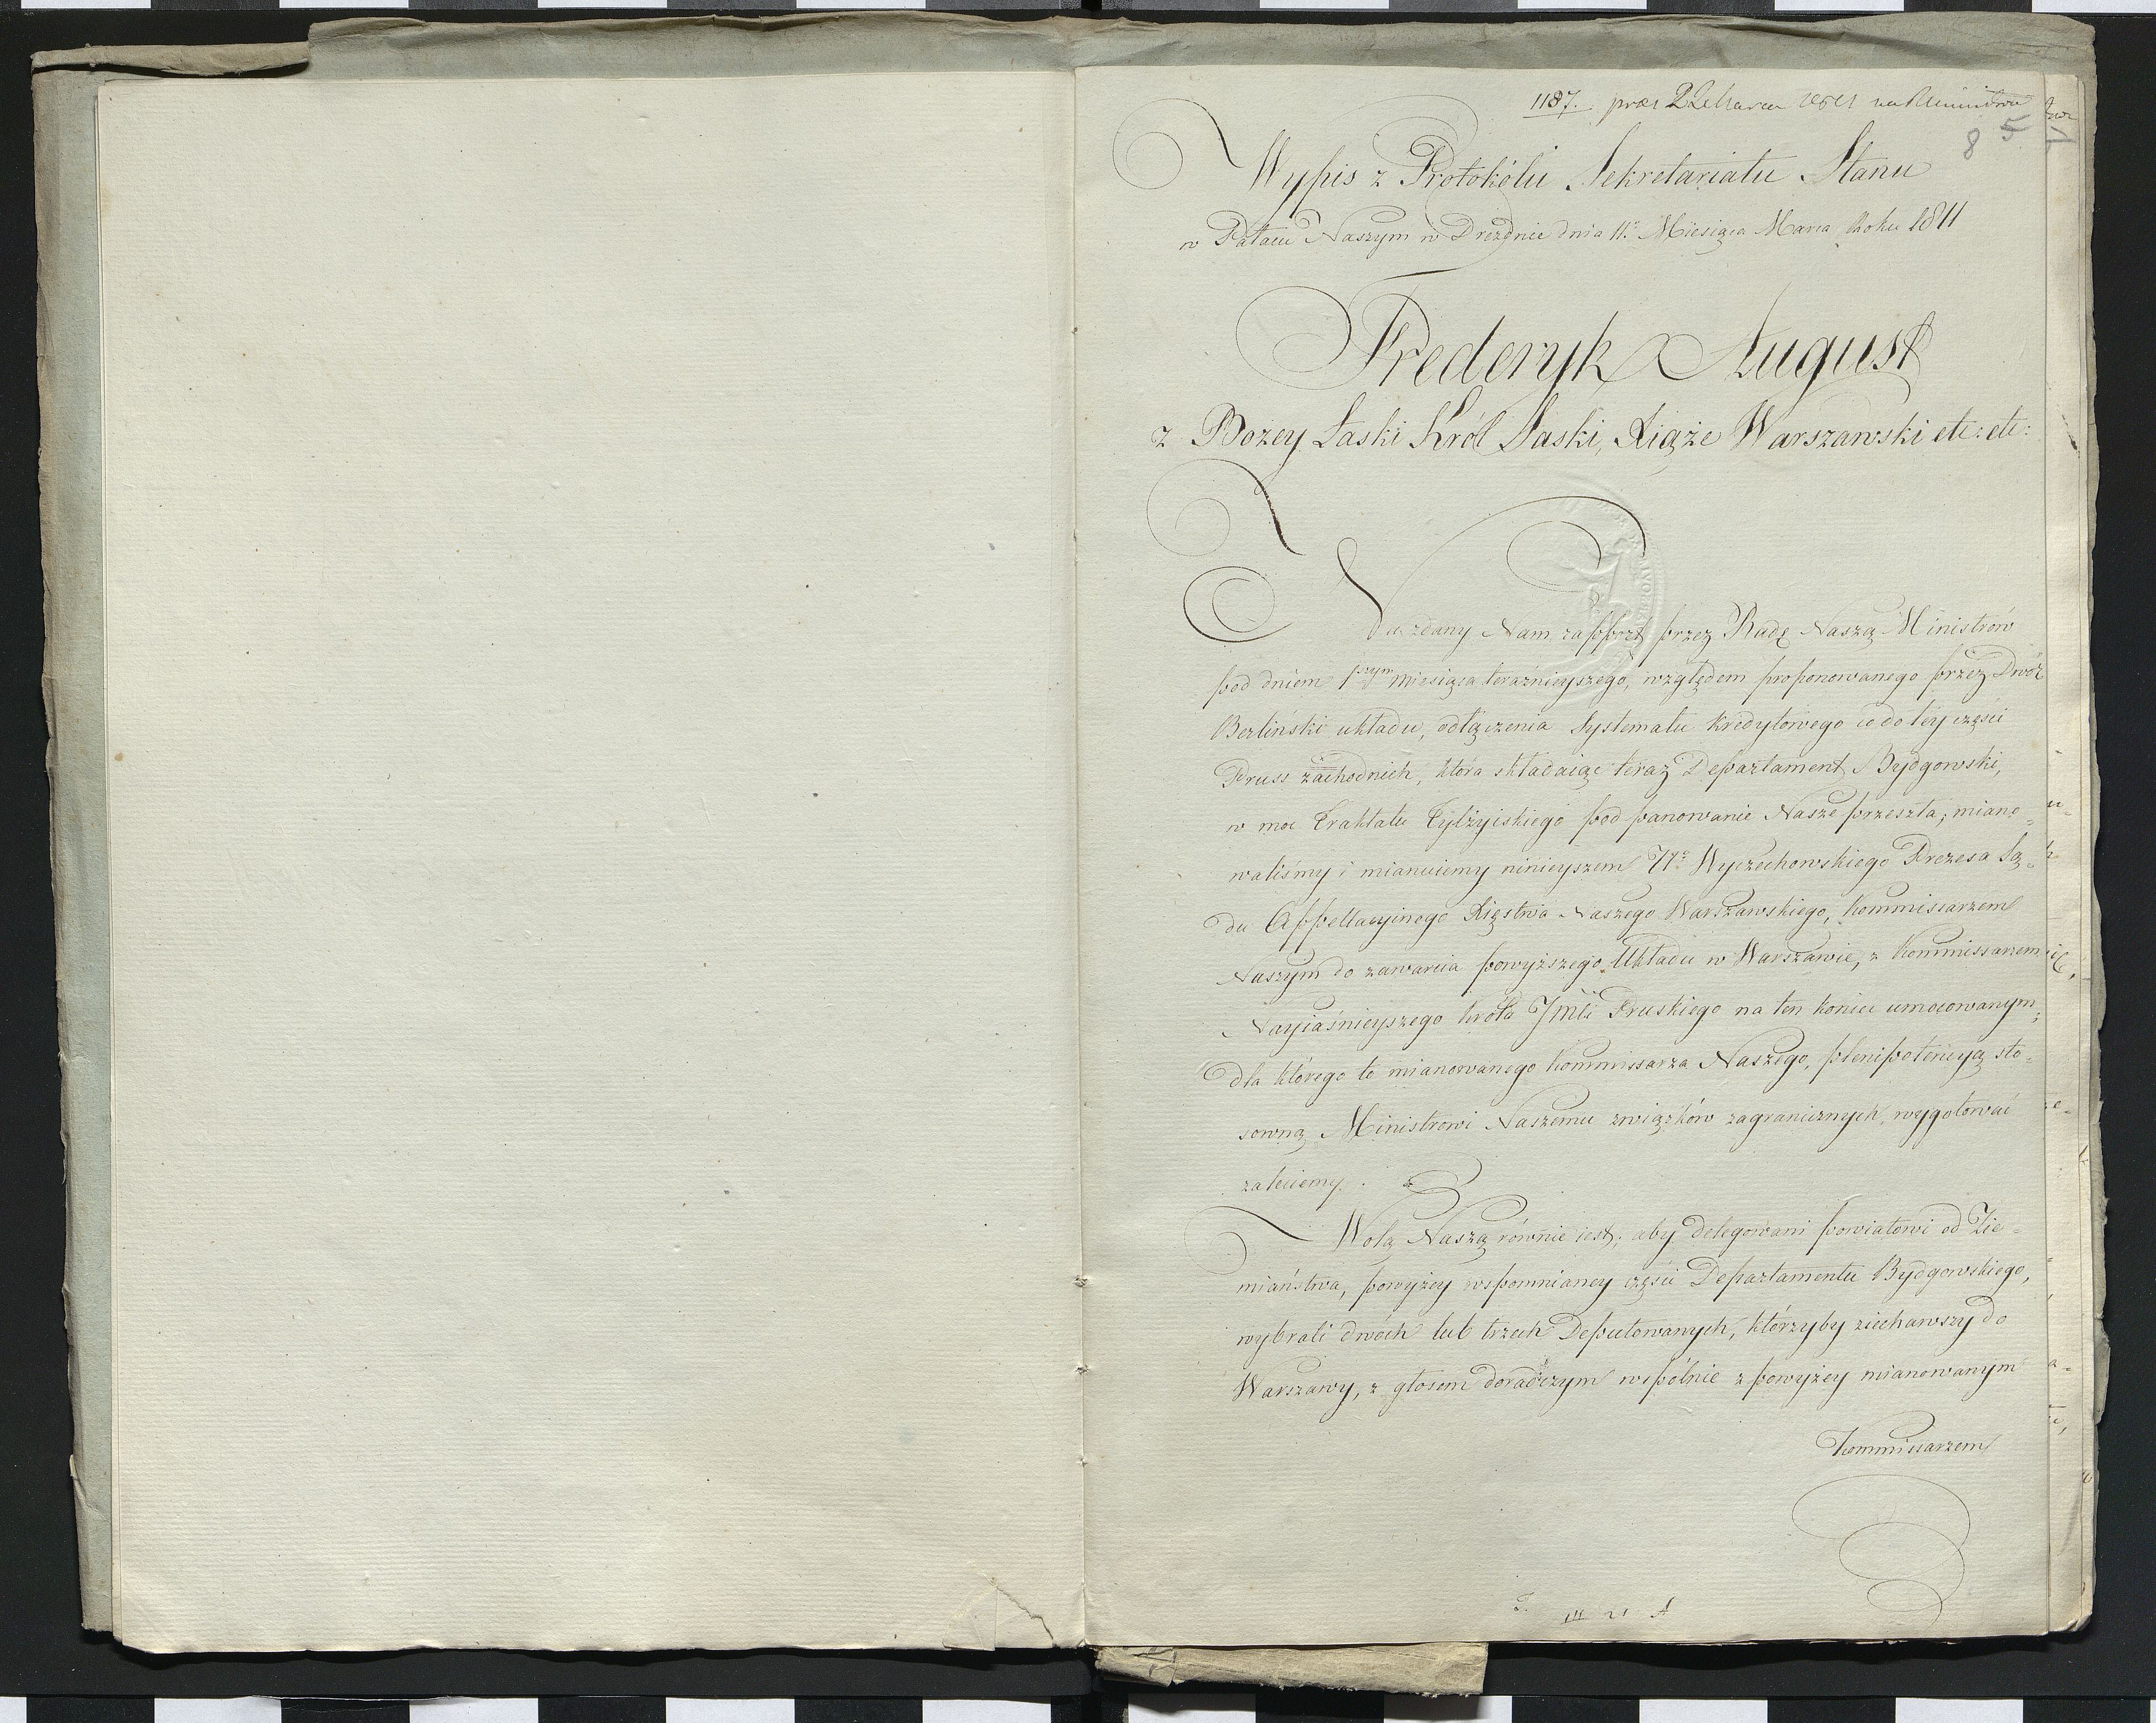 1187. præs 22 Marca 1811
8 5
Wypis z Protokólu Sekretariatu Stanu
w Pałacu Naszym w Dreźnie dnia 11º Miesiąca Marca Roku 1811
Frederyk August
z Bożey Łaski Król Saski, Xiąże Warszawski etc: etc:
Na zdany Nam rapport przez Radę Naszą Ministrów
pod dniem 1szym miesiąca teraźnieyszego, względem proponowanego przez Dwór
Berliński układu, odłączenia Systematu kredytowego co do tey części
Pruss zachodnich, która składaiąc teraz Departament Bydgowski,
w moc Traktatu Tylżyiskiego pod panowanie Nasze przeszła; miano=
waliśmy i mianuiemy ninieyszem Ur: Wyczechowskiego Prezesa Są=
du Appellacyinego Xięstwa Naszego Warszawskiego, Kommissarzem
Naszym do zawarcia powyższego Układu w Warszawie, z Kommissarzem
Nayiaśnieyszego Króla JMci Pruskiego na ten koniec umocowanym;
dla którego to mianowanego Kommissarza Naszego, plenipotencyą sto=
sowną Ministrowi Naszemu związków zagranicznych, wygotować
zaleciemy.
Wolą Naszą równie iest; aby delegowani powiatowi od Zie=
miaństwa, powyżey wspomnianey części Departamentu Bydgowskiego,
wybrali dwóch lub trzech Deputowanych, którzyby ziechawszy do
Warszawy, z głosem doradczym wspólnie z powyżey mianowanym
Kommissarzem